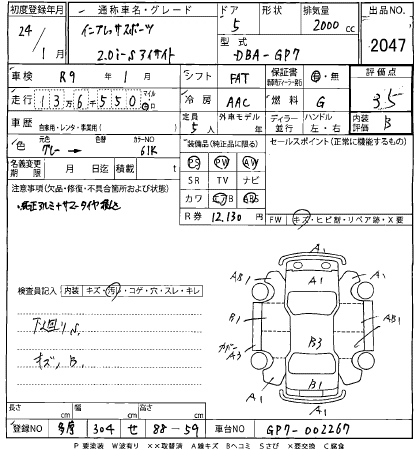 初度登録年月 通称車名・グレード ドア 形状 排気量 出品NO.
24/1月 インプレッサスポーツ 5 2000cc 2047
2.0i-S アイサイト 型式 DBA-GP7
車検 R9年1月 シフト FAT 保証書 有・無 評価点
走行 136550 マイル 冷房 AAC 燃料 G 3.5
車歴 自家用・レンタ・事業用( ) 定員 5人 外車モデル ディーラー 並行 ハンドル 左・右 内装評価 B
色 元色 グレー→ 色替 カラーNO 61K 装備品(純正品に限る) セールスポイント(正常に機能するもの)
名義変更期限 月 日迄 積載 t PS PW AW
注意事項(欠品・修復・不具合箇所および状態) SR TV ナビ
・純正アルミ+サマータイヤ積込 カワ エアB ABS
R券 12,130円 FW キズ・ヒビ割・リペア跡・X要
検査員記入 内装 キズ・汚レ・コゲ・穴・スレ・キレ
下回りS
キズ、B
A1
A1
A1
A1
B1
B3
AB1
カバー A3
B1
A1
A1
長さ cm 幅 cm 高さ cm
登録NO 多摩 304 せ 88-59 車台NO GP7-002267
P 要塗装 W波有り ××取替済 A線キズ Bヘコミ Sさび ×要交換 C腐食